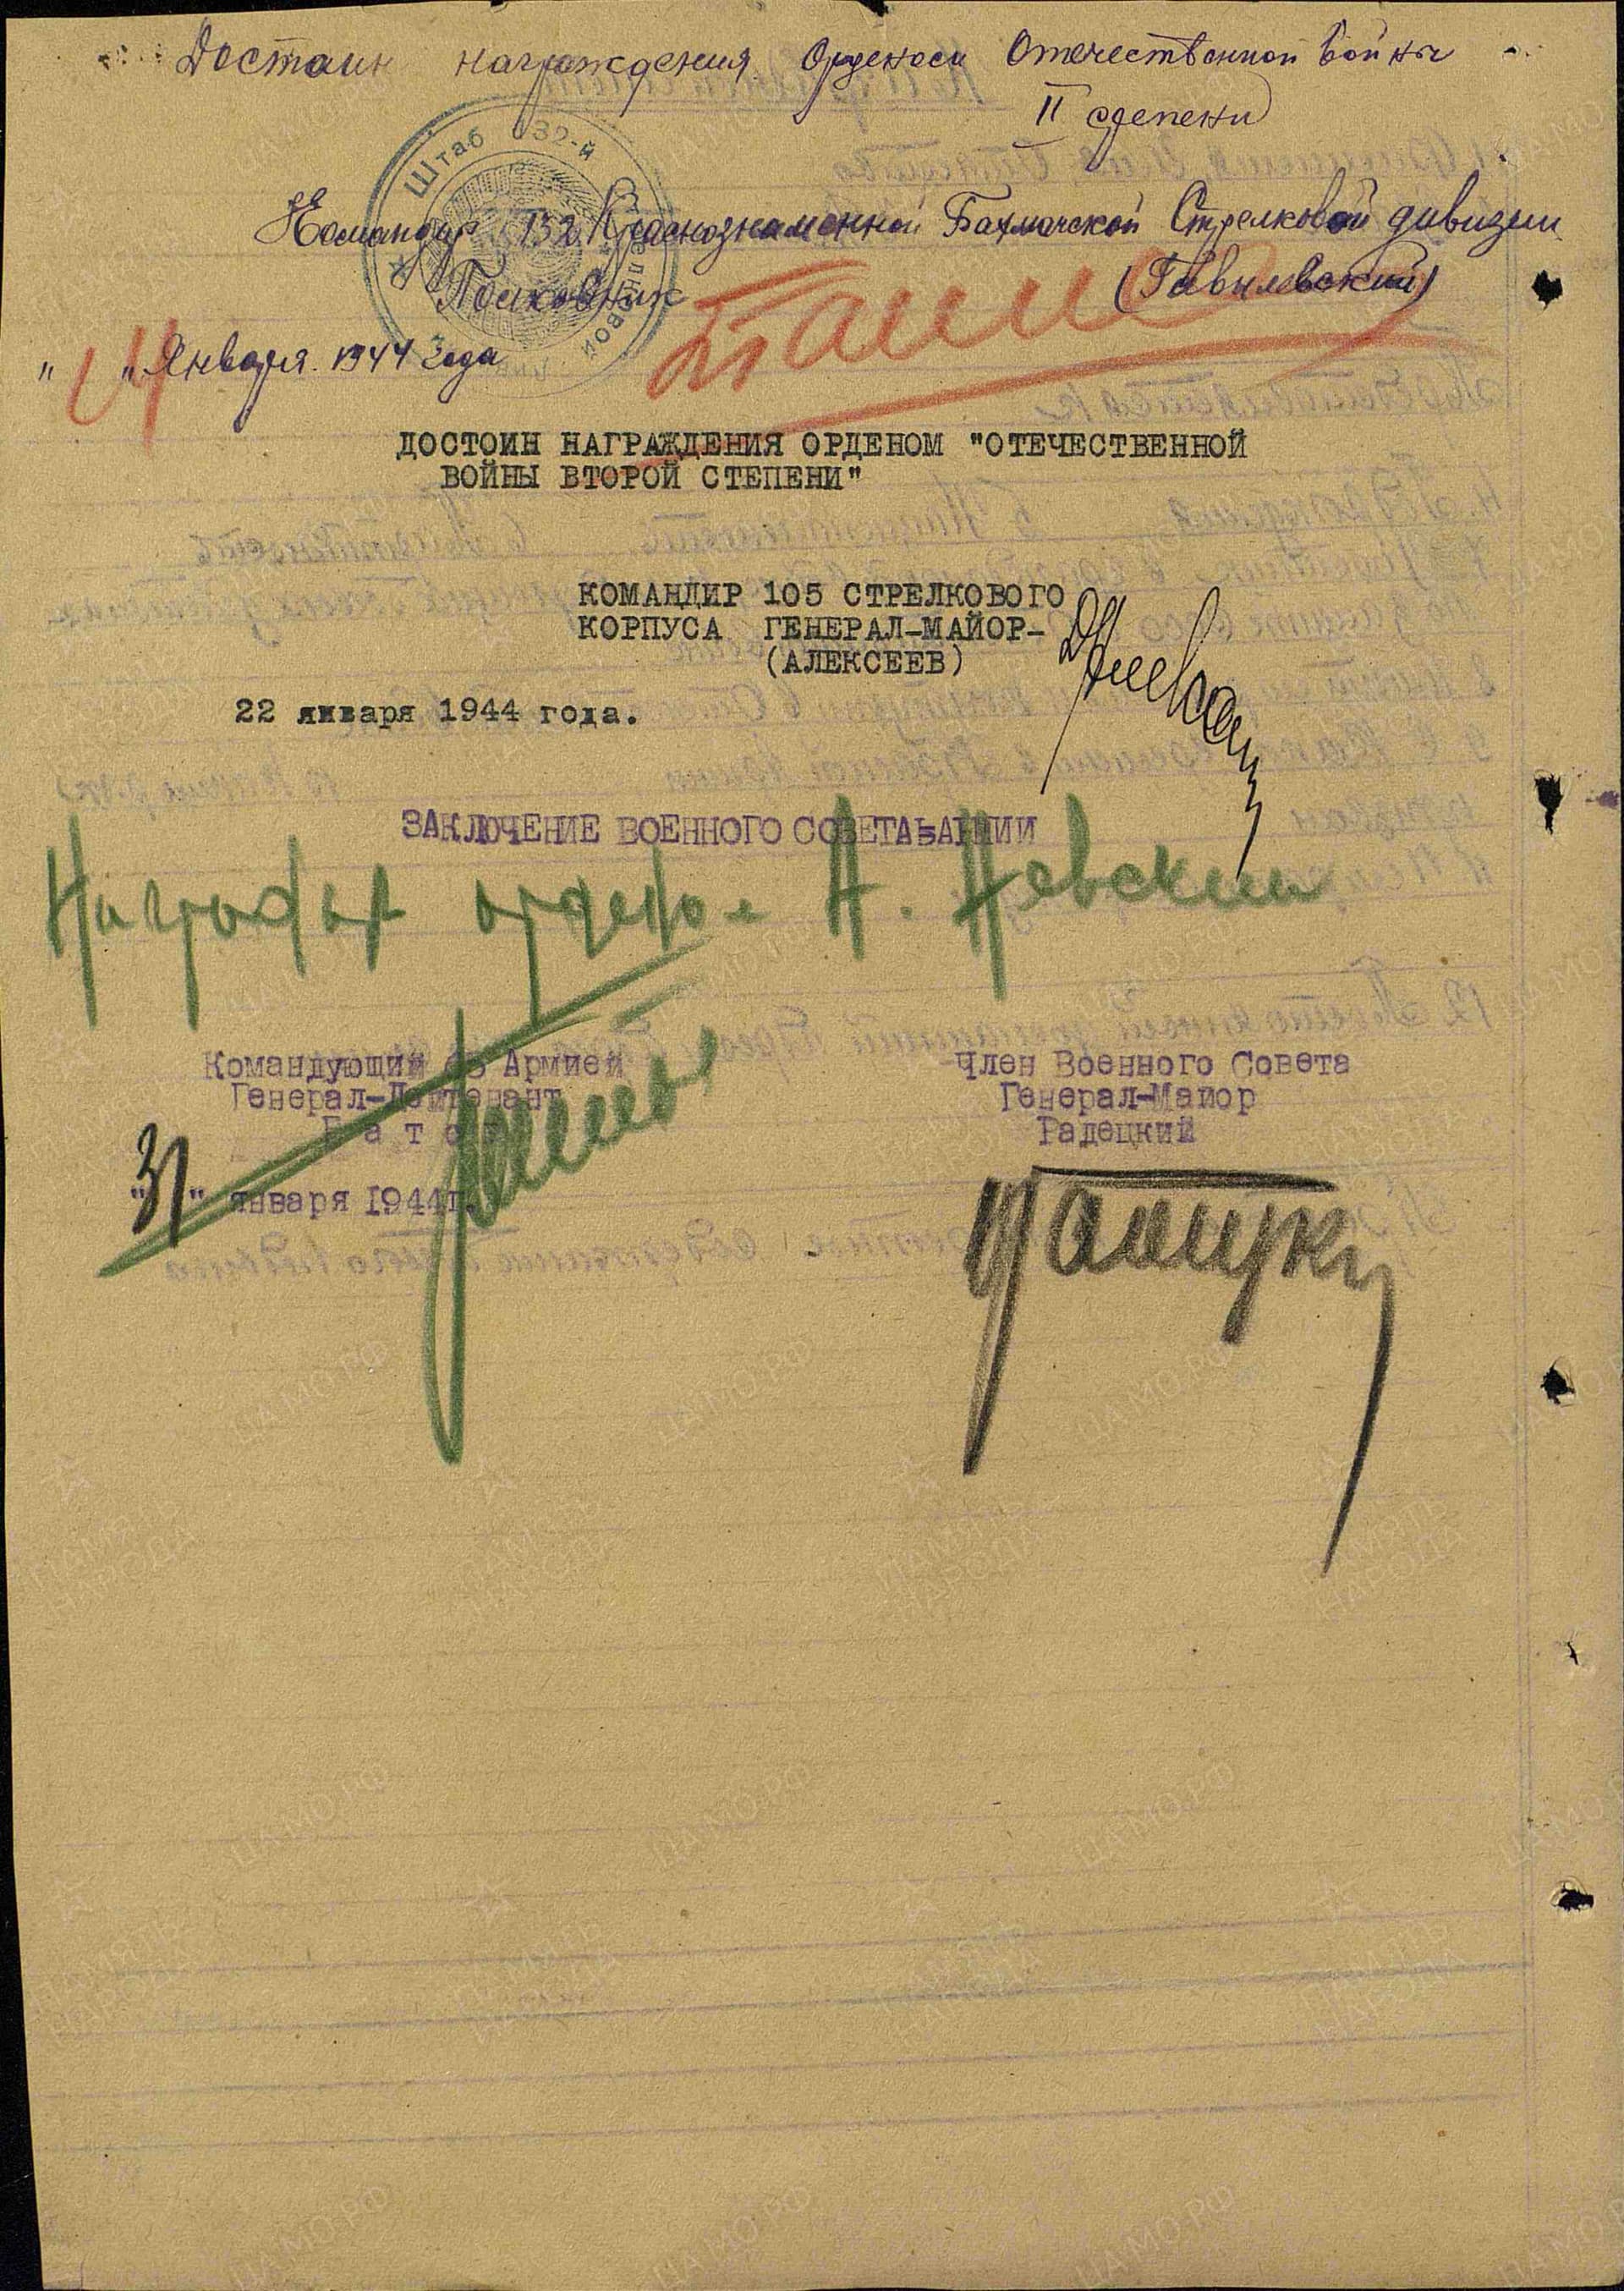 Достоин награждения Орденом Отечественной войны
II степени
Штаб 132-й Стрелковой
Командир 132 Краснознаменной Бахмачской Стрелковой дивизии
Полковник (Гавилевский)
" 14 " Января 1944 года
ДОСТОИН НАГРАЖДЕНИЯ ОРДЕНОМ "ОТЕЧЕСТВЕННОЙ
ВОЙНЫ ВТОРОЙ СТЕПЕНИ"
КОМАНДИР 105 СТРЕЛКОВОГО
КОРПУСА ГЕНЕРАЛ-МАЙОР-
(АЛЕКСЕЕВ)
22 января 1944 года.
ЗАКЛЮЧЕНИЕ ВОЕННОГО СОВЕТА 65 АРМИИ
Наградить орденом А. Невский
Командующий 65 Армией
Генерал-Лейтенант
Батов
"31" января 1944 г.
Член Военного Совета
Генерал-Майор
Радецкий